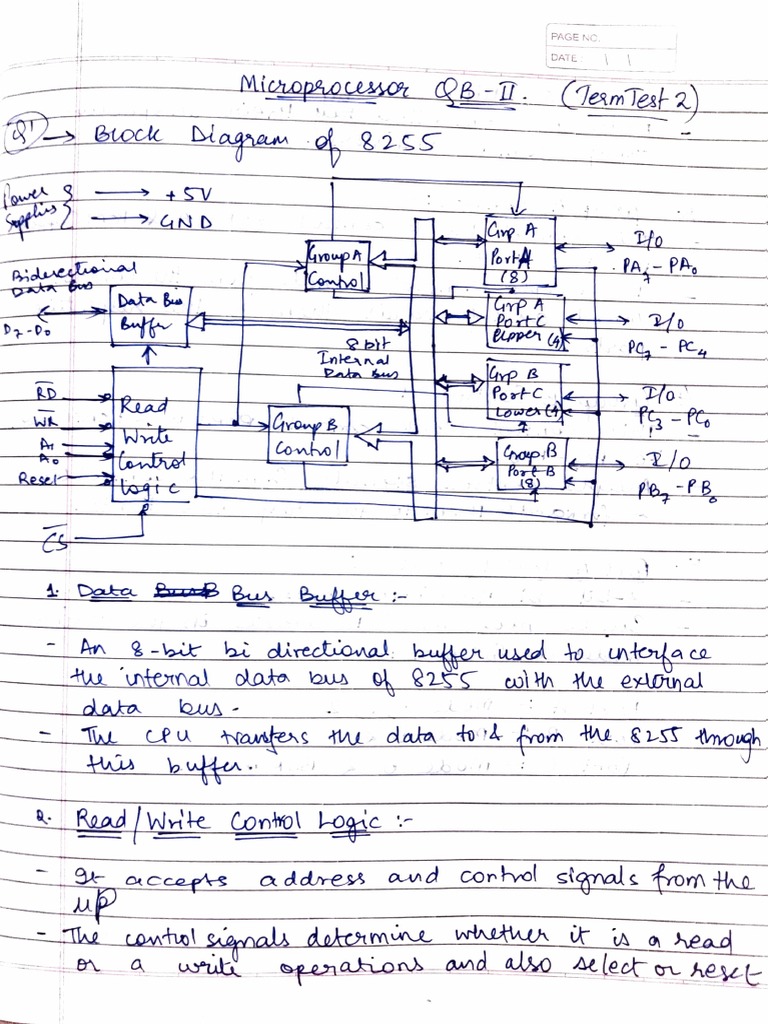 PAGE NO.
DATE:
Microprocessor QB-II. (Term Test 2)
Q1 → Block Diagram of 8255
Power Supplies
→ +5V
→ GND
Bidirectional
Data Bus
D7-D0
Data Bus
Buffer
R̅D̅
W̅R̅
A1
A0
Reset
C̅S̅
Read
Write
Control
Logic
Group A
Control
Group B
Control
8 bit
Internal
Data Bus
Grp A
Port A
(8)
Grp A
Port C
Upper (4)
Grp B
Port C
Lower (4)
Group B
Port B
(8)
I/O
PA7 - PA0
I/O
PC7 - PC4
I/O
PC3 - PC0
I/O
PB7 - PB0
1. Data Bus Buffer :-
- An 8-bit bi directional buffer used to interface
the internal data bus of 8255 with the external
data bus.
- The CPU transfers the data to & from the 8255 through
this buffer.
2. Read/Write Control Logic :-
- It accepts address and control signals from the
μP
- The control signals determine whether it is a read
or a write operations and also select or reset